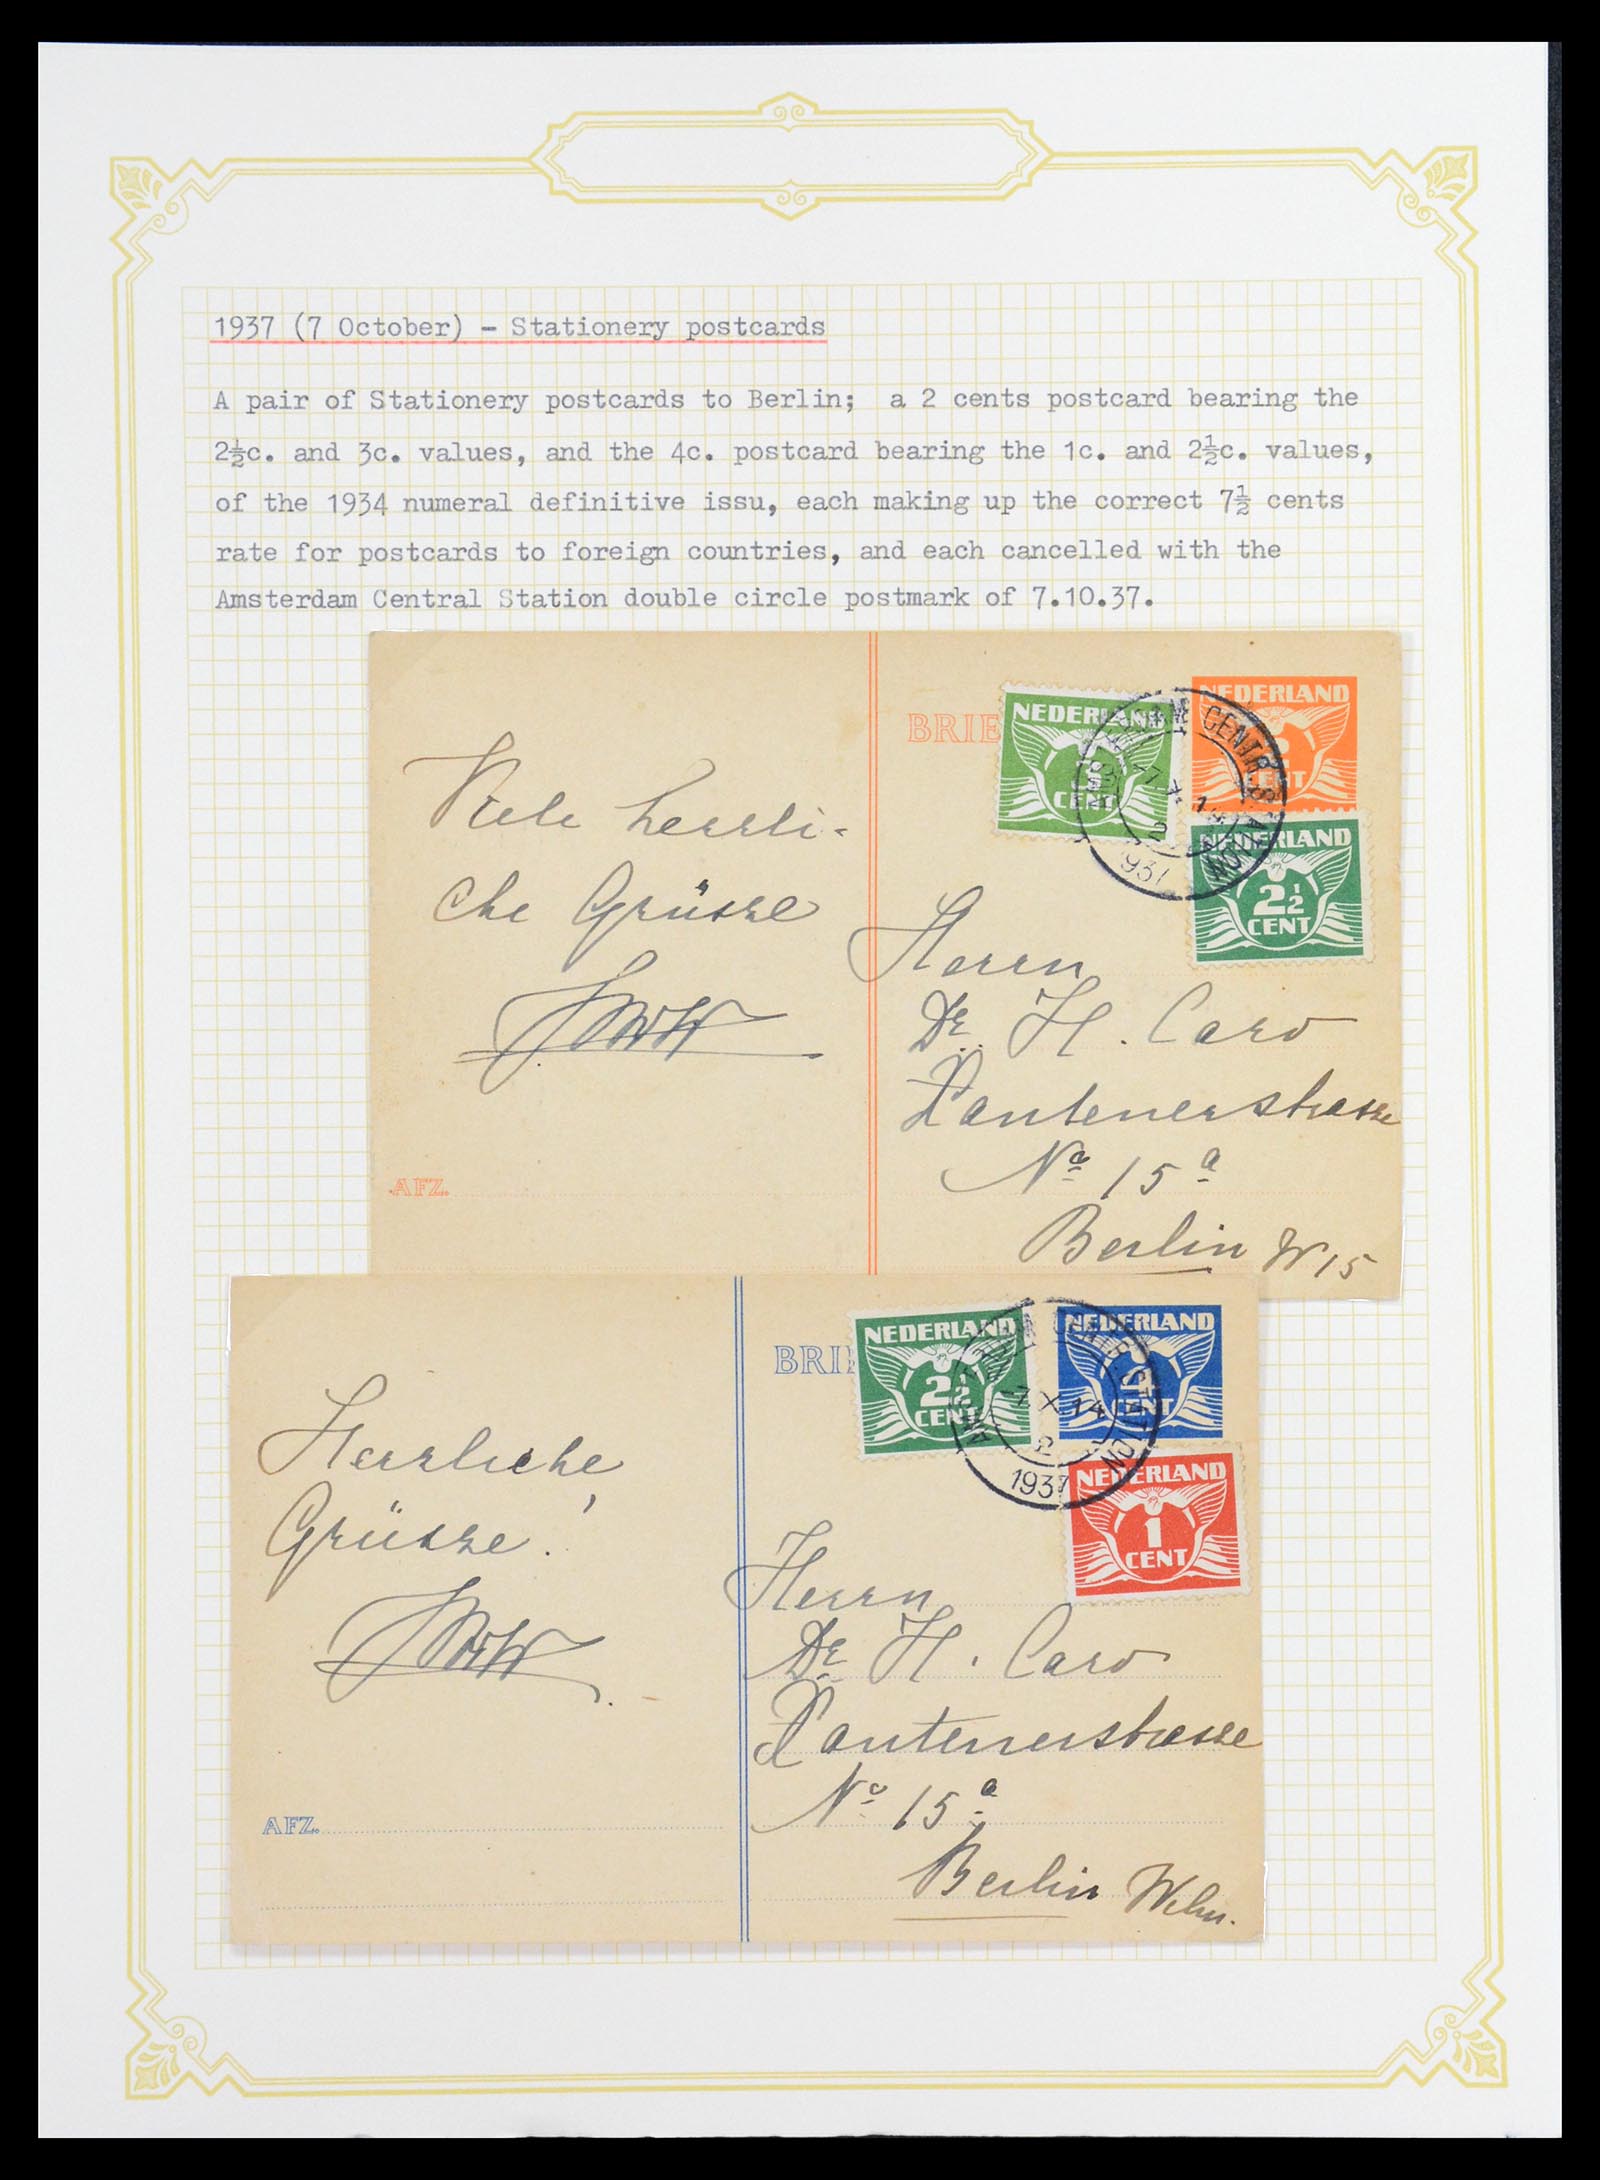 1937 (7 October) - Stationery postcards
A pair of Stationery postcards to Berlin; a 2 cents postcard bearing the
2½c. and 3c. values, and the 4c. postcard bearing the 1c. and 2½c. values,
of the 1934 numeral definitive issu, each making up the correct 7½ cents
rate for postcards to foreign countries, and each cancelled with the
Amsterdam Central Station double circle postmark of 7.10.37.
BRIE
NEDERLAND
CENT
NEDERLAND
CENT
CENTR. STATION
1937
NEDERLAND
2½
CENT
Viele herrli-
che Grüsse
Herrn
Dr. H. Caro
Xantenerstrasse
No 15a
Berlin W15
AFZ.
BRI
NEDERLAND
2½
CENT
NEDERLAND
4
CENT
STATION
7.X.14
2
1937
NEDERLAND
1
CENT
Herrliche
Grüsse!
Herrn
Dr. H. Caro
Xantenerstrasse
No 15a
Berlin
AFZ.